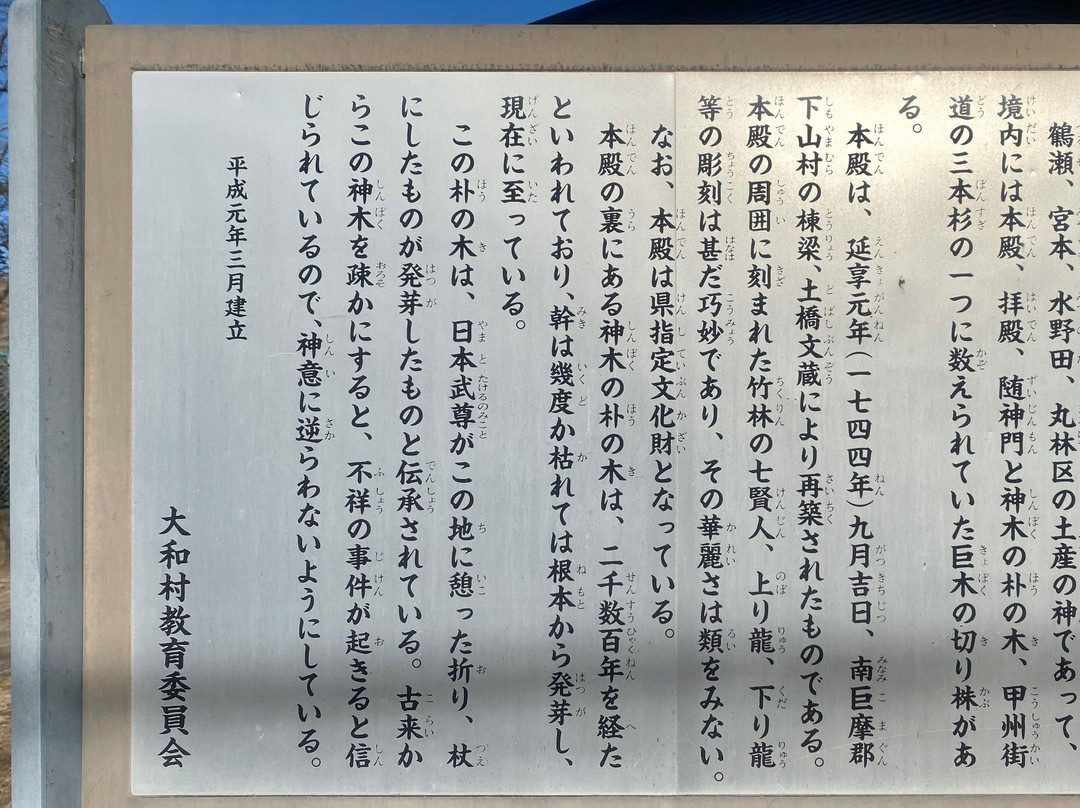 鶴瀬、宮本、水野田、丸林区の土産の神であって、
境内には本殿、拝殿、随神門と神木の朴の木、甲州街
道の三本杉の一つに数えられていた巨木の切り株があ
る。
本殿は、延享元年（一七四四年）九月吉日、南巨摩郡
下山村の棟梁、土橋文蔵により再築されたものである。
本殿の周囲に刻まれた竹林の七賢人、上り龍、下り龍
等の彫刻は甚だ巧妙であり、その華麗さは類をみない。
なお、本殿は県指定文化財となっている。
本殿の裏にある神木の朴の木は、二千数百年を経た
といわれており、幹は幾度か枯れては根本から発芽し、
現在に至っている。
この朴の木は、日本武尊がこの地に憩った折り、杖
にしたものが発芽したものと伝承されている。古来か
らこの神木を疎かにすると、不祥の事件が起きると信
じられているので、神意に逆らわないようにしている。
平成元年三月建立
大和村教育委員会